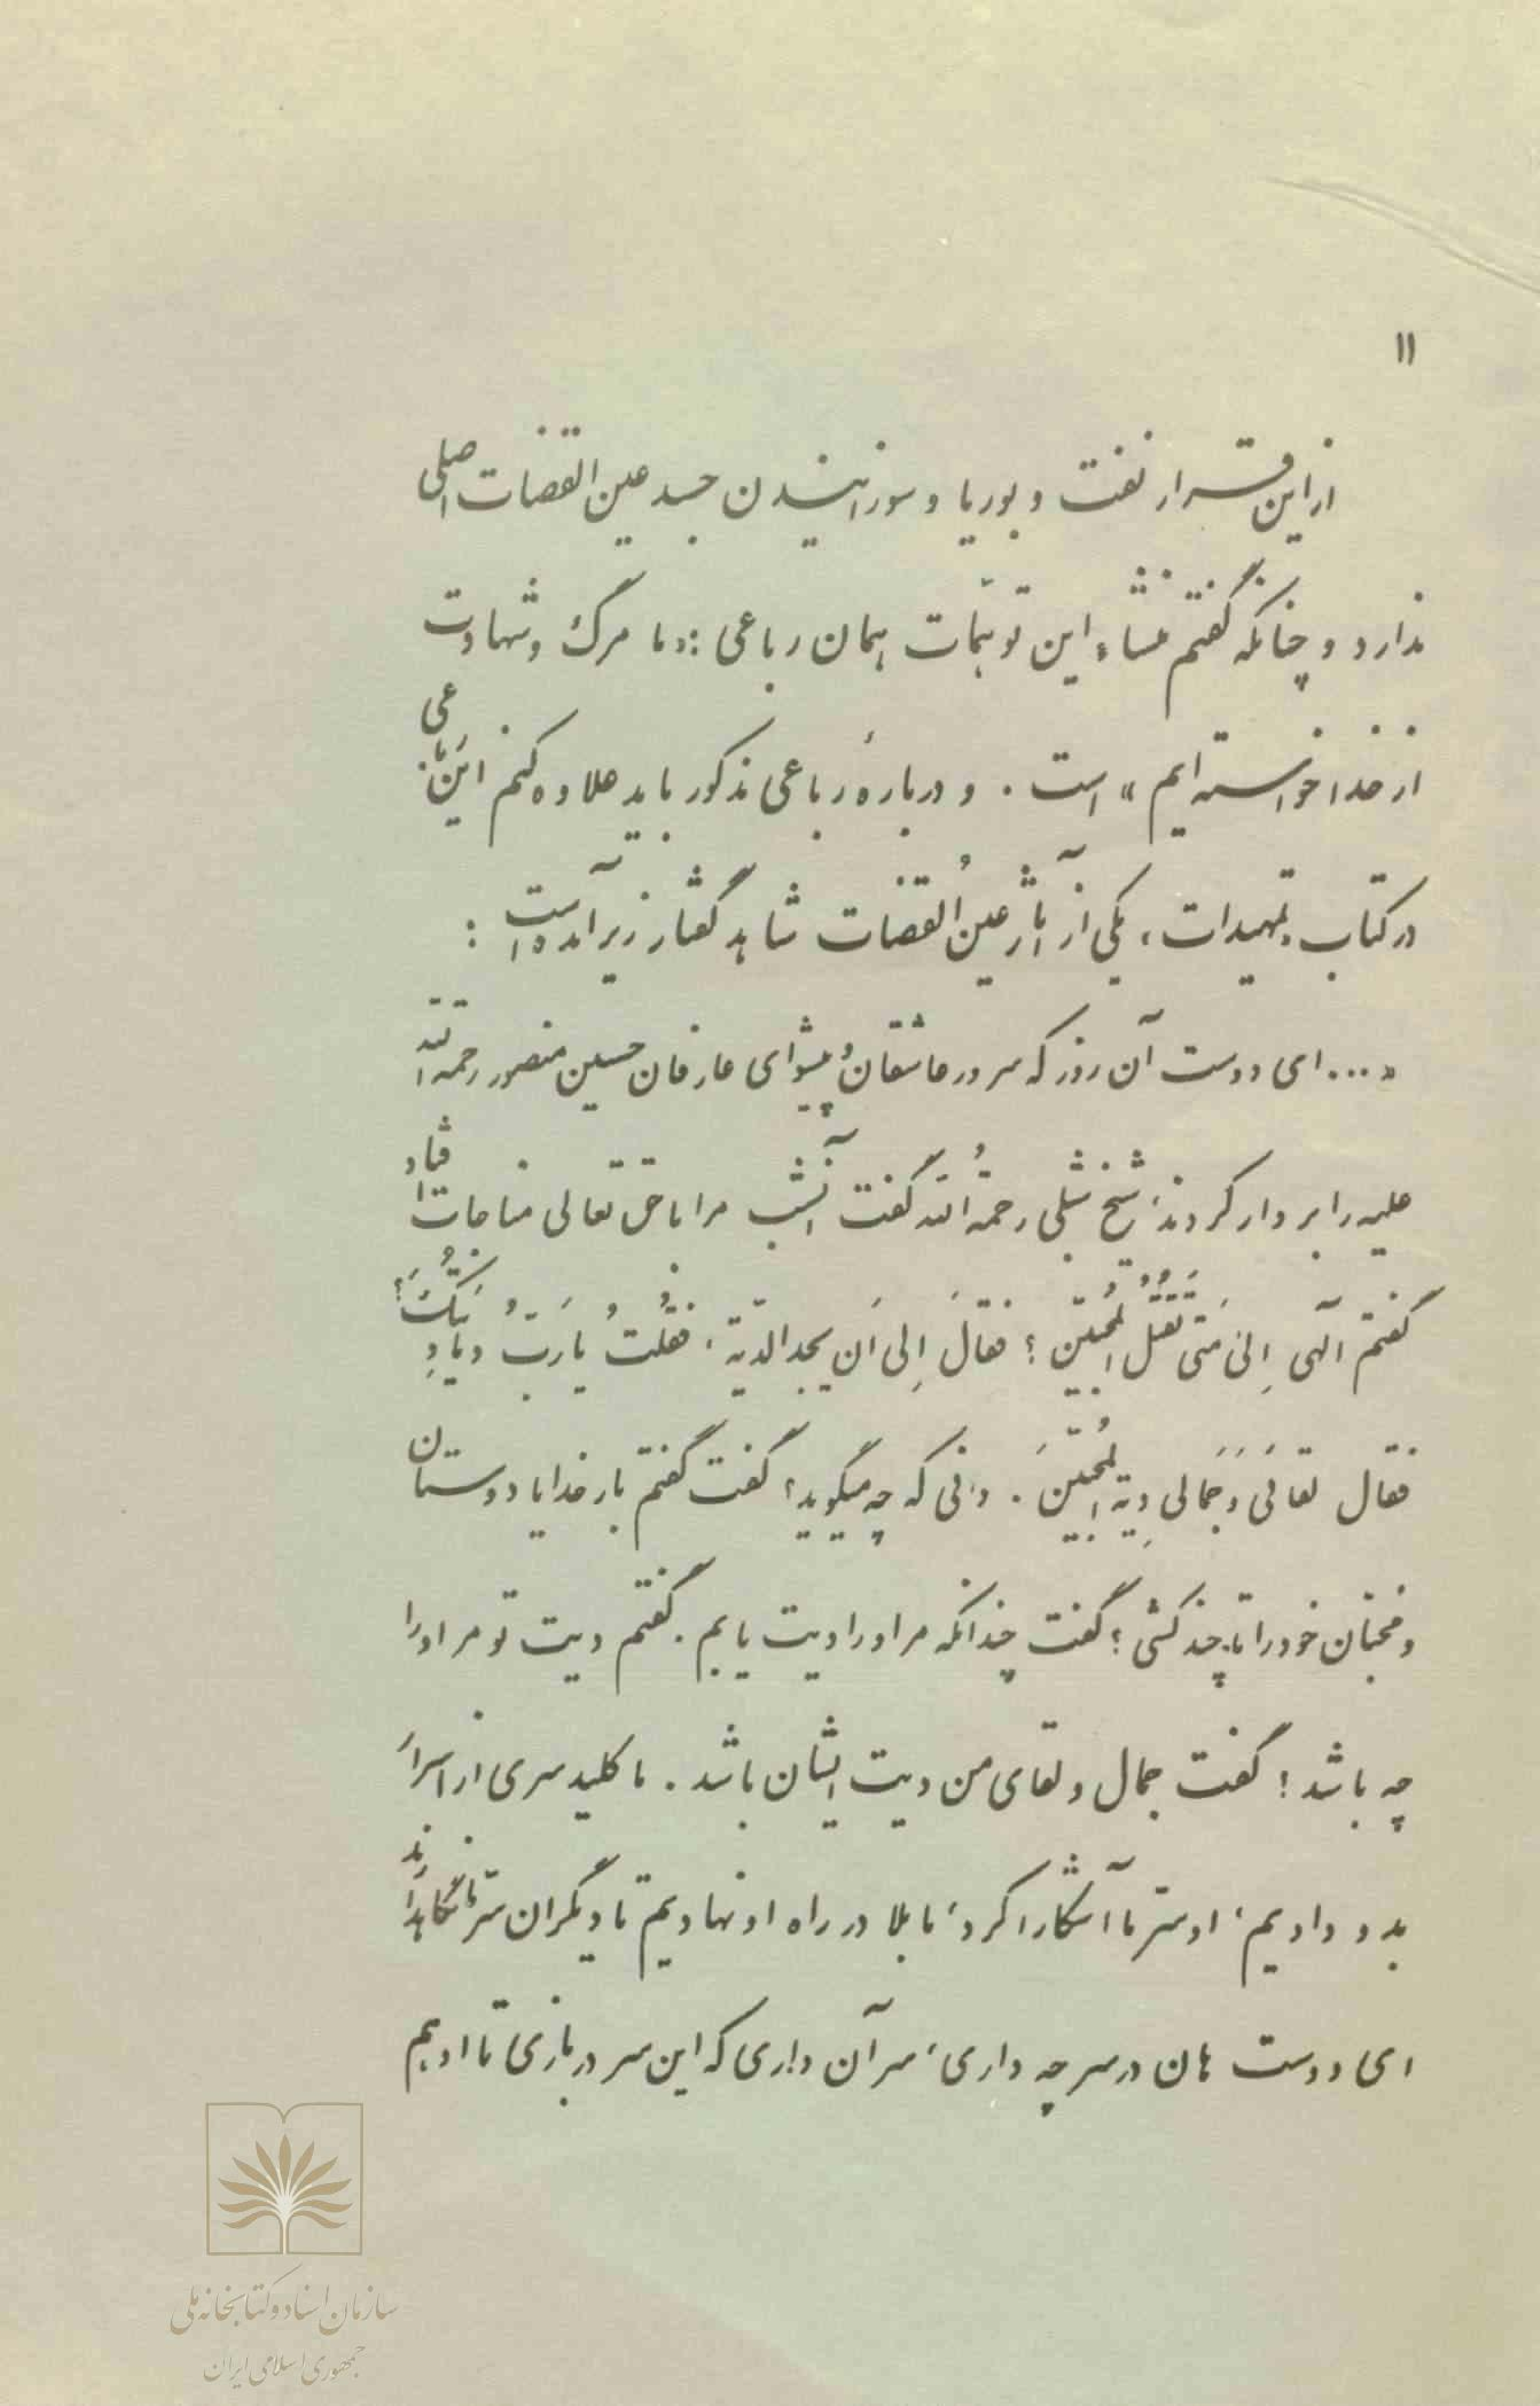 ۱۱
از این قرار نفت و بوریا و سوزانیدن جسد عین القضات اصلی
ندارد و چنانکه گفتم منشاء این توهّمات همان رباعی : «ما مرگ و شهادت
از خدا خواسته‌ایم» است . و دربارهٔ رباعی مذکور باید علاوه کنم این رباعی
در کتاب تمهیدات، یکی از آثار عینُ القضات شاهد گفتار زیر آمده است :
« ... ای دوست آن روز که سرور عاشقان و پیشوای عارفان حسین منصور رحمة الله
علیه را بر دار کردند، شیخ شبلی رحمةُ الله گفت آنشب مرا با حق تعالی مناجات افتاد
گفتم الهی اِلیٰ مَتی تَقتُلُ المُحبّین ؟ فقالَ اِلی اَن یجد الدّیة . فقُلتُ یا رَبُّ و ما دِیَتُکَ؟
فقال لقائی وَ جَمالی دِیَة المُحبّینَ . دانی که چه میگوید؟ گفت گفتم بار خدایا دوستان
و مُحبّان خود را تا چند کشی ؟ گفت چندانکه مر او را دیت یابم . گفتم دیت تو مر او را
چه باشد ؟ گفت جمال و لقای من دیت ایشان باشد . ما کلید سری از اسرار
بدو دادیم، او سرّ ما آشکارا کرد، ما بلا در راه او نهادیم تا دیگران سرّ ما نگاهدارند
ای دوست هان در سر چه داری، سر آن داری که این سر در بازی تا او هم
سازمان اسناد و کتابخانه ملی
جمهوری اسلامی ایران